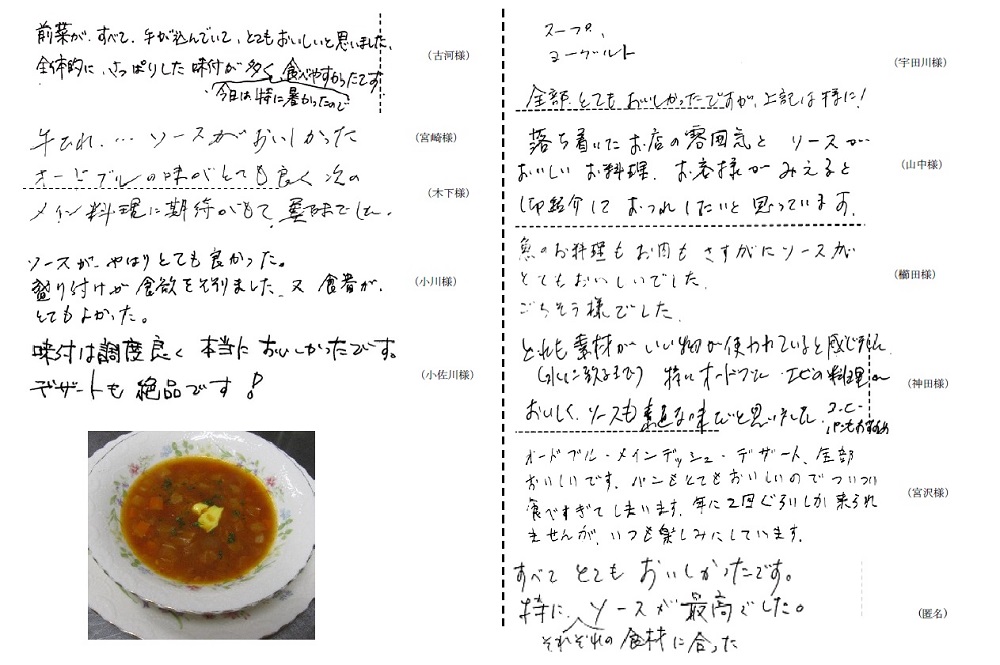 前菜が、すべて、手が込んでいて、とてもおいしいと思いました、
全体的に、さっぱりした味付が多く、食べやすかったです
今日は特に暑かったので
(古河様)
牛ひれ、… ソースがおいしかった
(宮崎様)
オードブルの味がとても良く次の
メイン料理に期待がもて、美味でした、
(木下様)
ソースが、やはりとても良かった。
盛り付けが食欲をそそりました、又、食器が、
とてもよかった。
(小川様)
味付は調度良く本当においしかったです。
デザートも絶品です!
(小佐川様)
スープ、
ヨーグルト
(宇田川様)
全部、とてもおいしかったですが、上記は特に!
落ち着いたお店の雰囲気と ソースが
おいしいお料理、お客様がみえると
ご紹介しておつれしたいと思っています。
(山中様)
魚のお料理もお肉もさすがにソースが
とてもおいしいでした。
ごちそう様でした。
(櫛田様)
とれも素材がいい物が使われていると感じました、
特にオードブル 料理が
おいしく、ソースも な味だと思いました、
コーヒー
パンも
(神田様)
オードブル・メインデッシュ・デザート、全部
おいしいです。パンもとてもおいしいのでついつい
食べすぎてしまいます。年に2回ぐらいしか来られ
ませんが、いつも楽しみにしています。
(宮沢様)
すべてとてもおいしかったです。
特に、ソースが最高でした。
それぞれの食材に合った
(匿名)